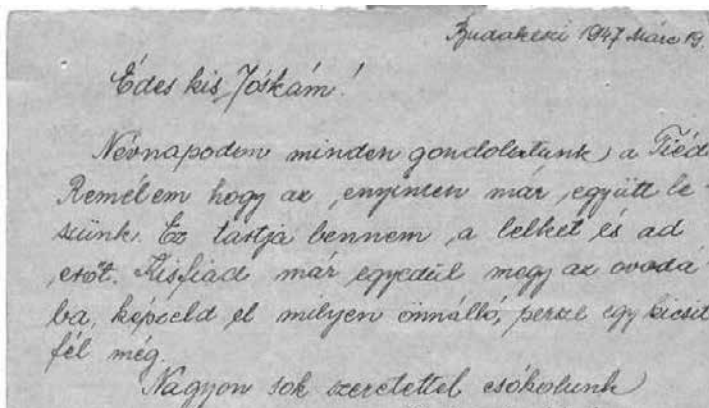 Budakeszi 1947 Márc 19.
Édes kis Jóskám!
Névnapodon minden gondolatunk a Tiéd
Remélem hogy az enyimen már együtt le-
szünk. Ez tartja bennem a lelket és ad
erőt. Kisfiad már egyedül megy az ovodá-
ba, képzeld el milyen önnálló, persze egy kicsit
fél még.
Nagyon sok szeretettel csókolunk